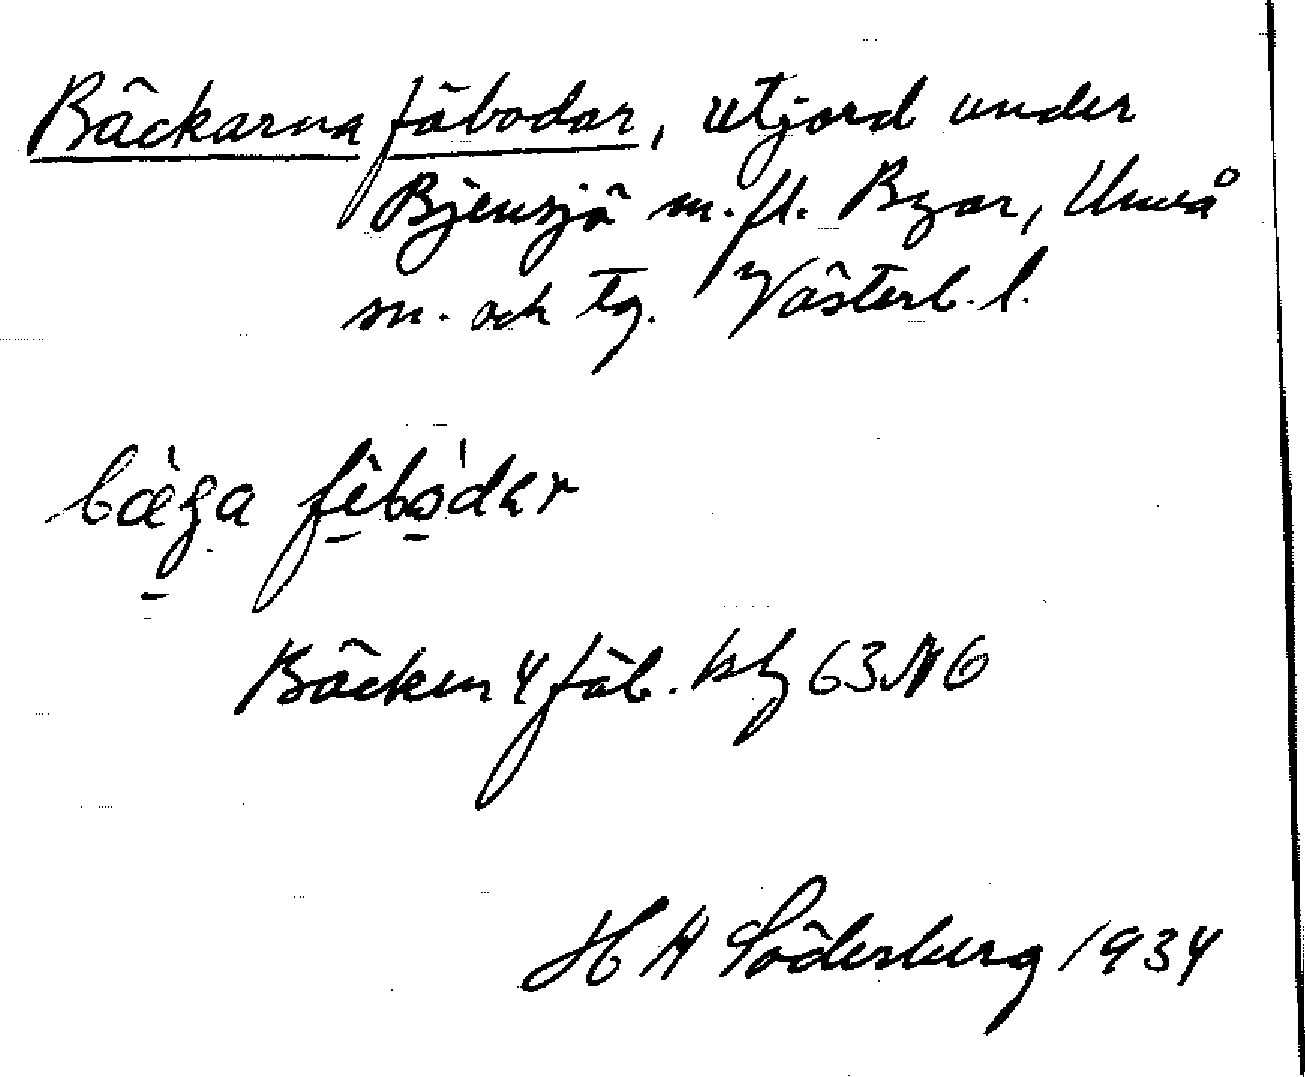 Bäckarna fäbodar, utjord under
Bjensjö m. fl. Byar, Umeå
sn. och tg. Västerb. l.
fèbo̱'dar
Bäcken 4 fäb. kbl 63 N6
H A Söderberg 1934